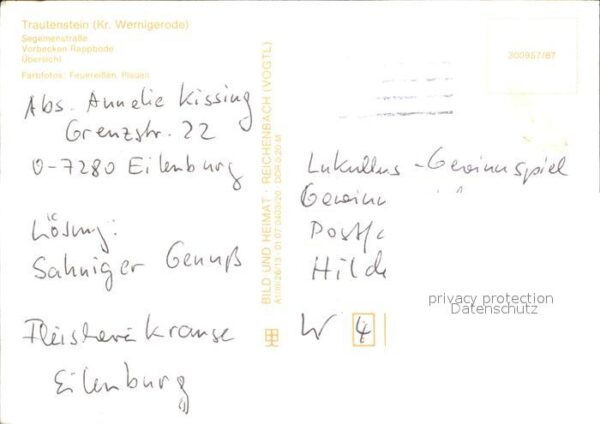 Trautenstein (Kr. Wernigerode)
Segelmenstraße
Vorbecken Rappbode
Übersicht
Farbfotos: Feuereißen, Plauen
Abs. Annelie Kissing
Grenzstr. 22
O-7280 Eilenburg
Lösung:
Sahniger Genuß
Fleischerei Krause
Eilenburg
BILD UND HEIMAT REICHENBACH (VOGTL)
A1/III/26/13 01 07 0403/20 DDR 0,20 M
300957/87
Lukullus-Gewinnspiel
Gewinn
Postf
Hilde
W 4
privacy protection
Datenschutz